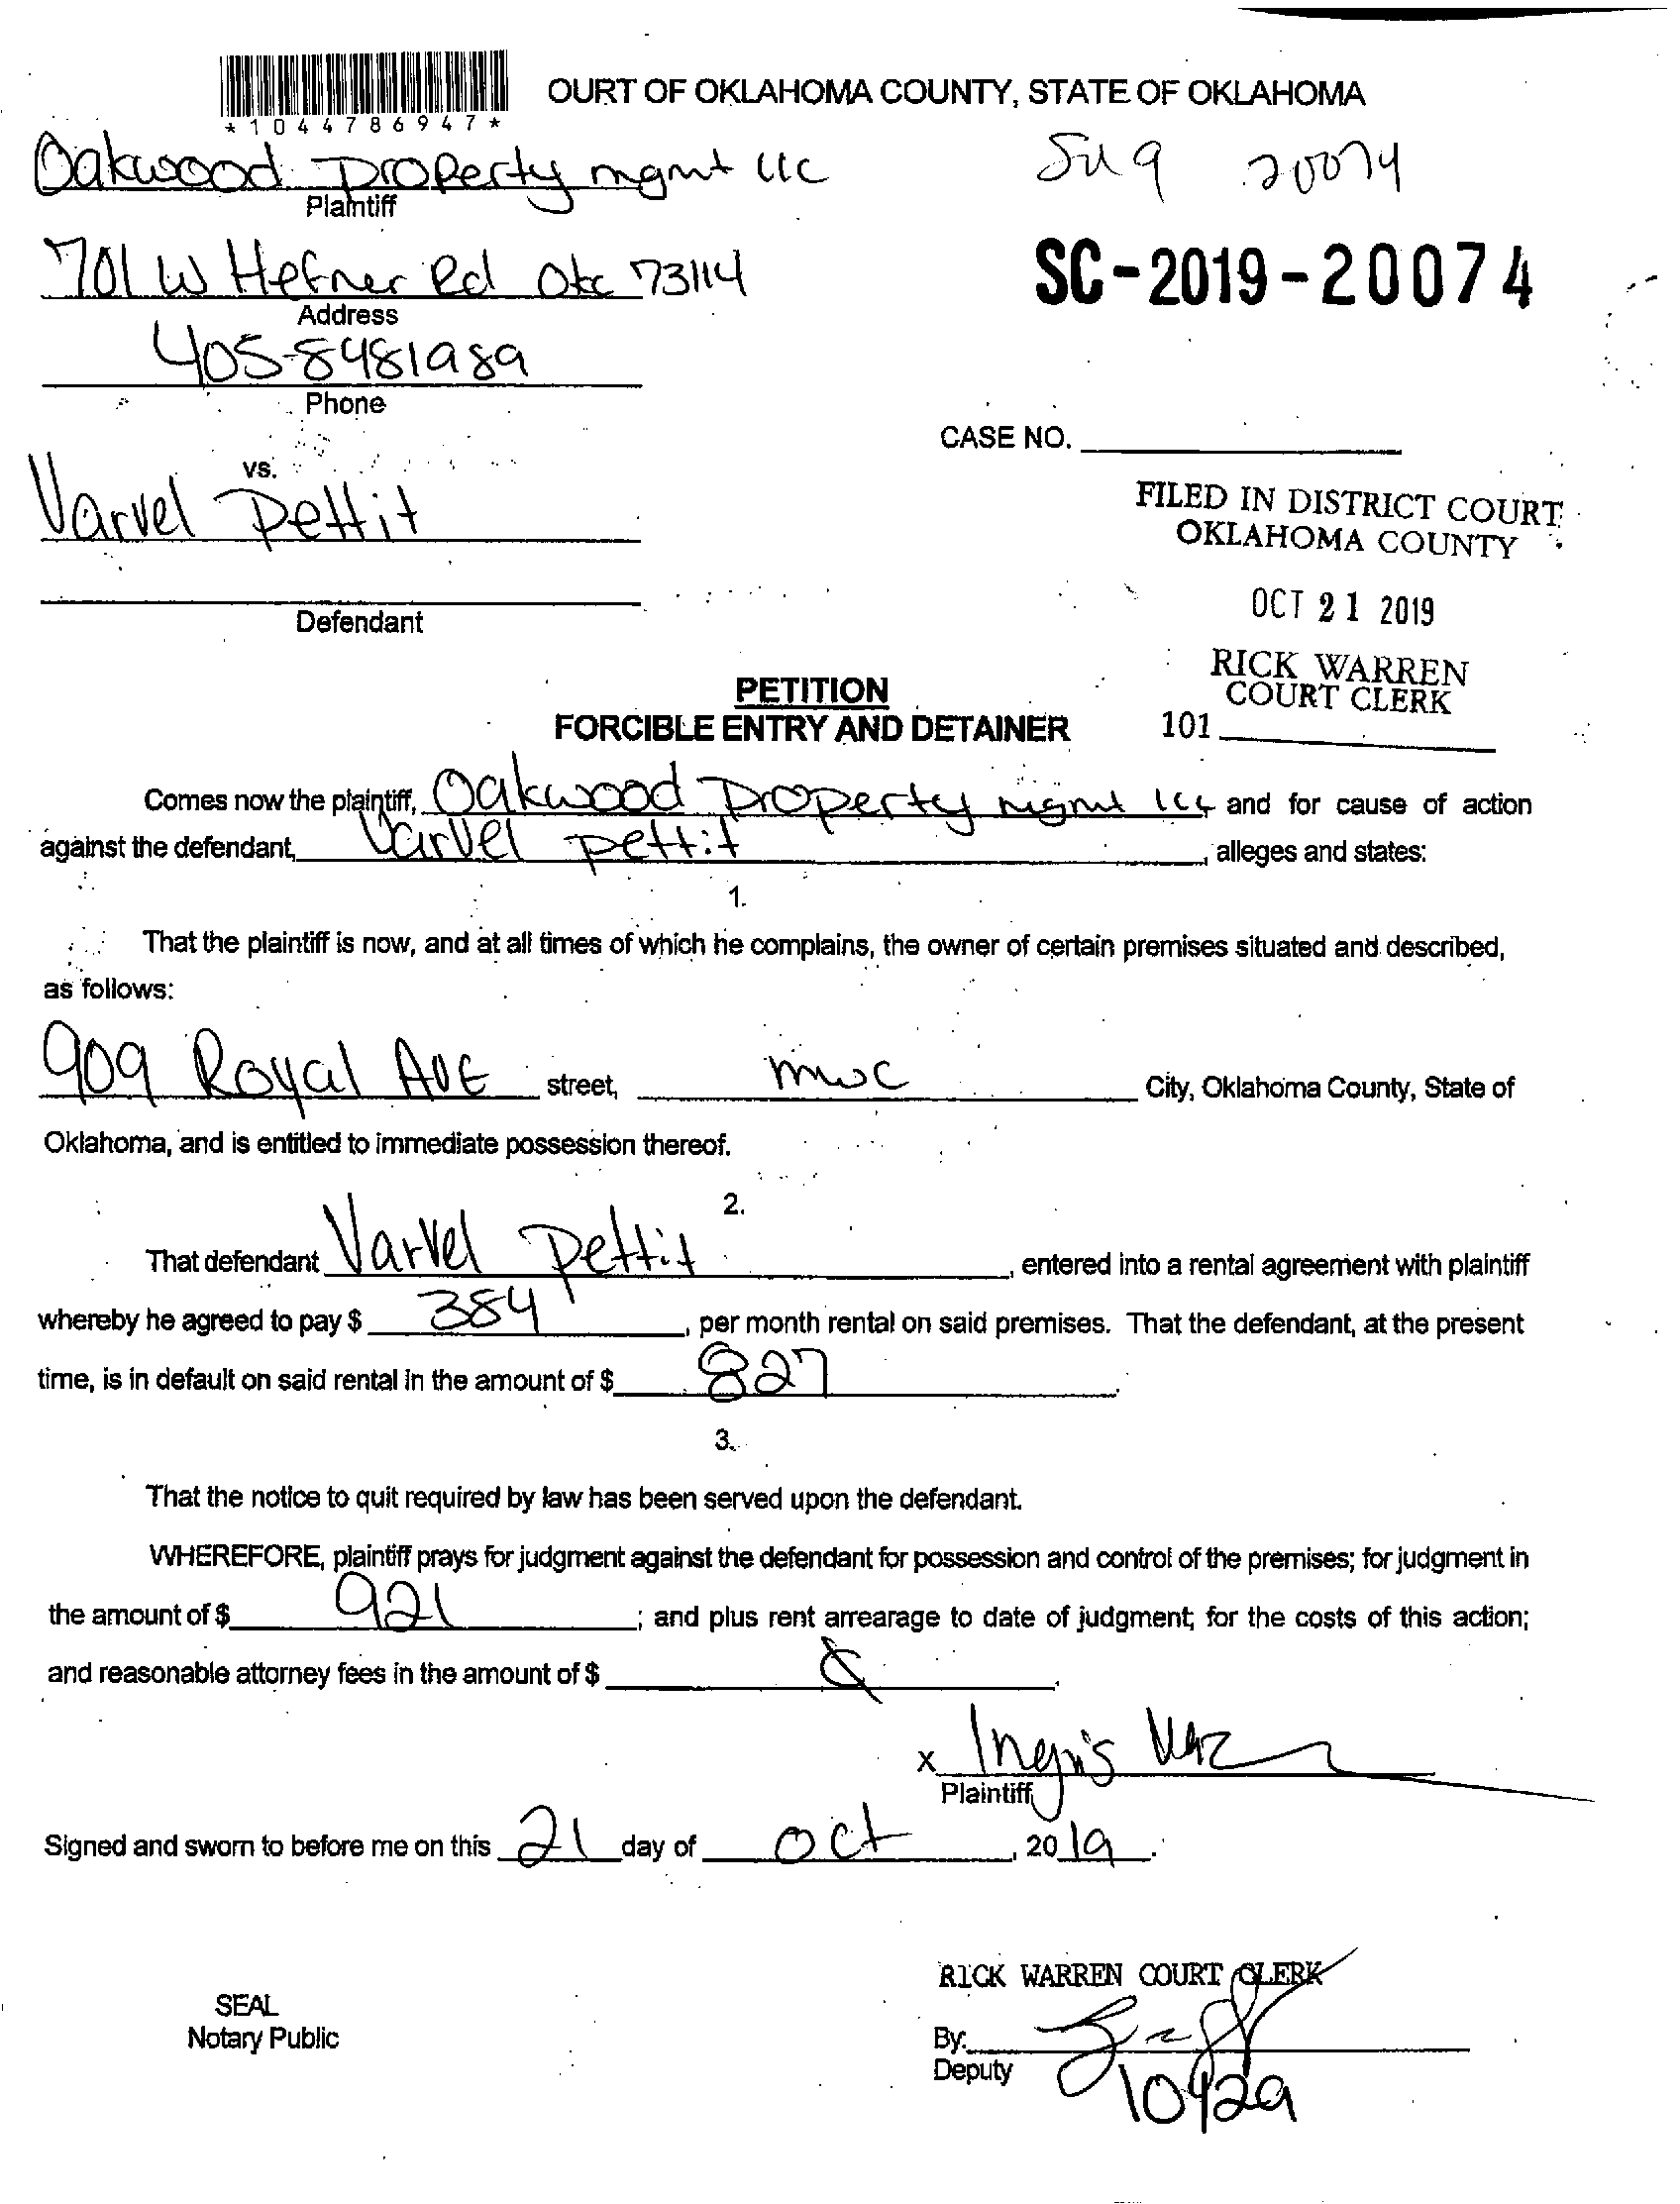 OURT OF OKLAHOMA COUNTY, STATE OF OKLAHOMA
*1044786947*
Oakwood Property mgmt llc
Plaintiff
20074
701 W Hefner Rd Okc 73114
Address
SC-2019-20074
405-8481989
Phone
CASE NO.
vs.
Varvel Pettit
FILED IN DISTRICT COURT
OKLAHOMA COUNTY
Defendant
OCT 21 2019
RICK WARREN
COURT CLERK
101
PETITION
FORCIBLE ENTRY AND DETAINER
Comes now the plaintiff, Oakwood Property mgmt llc, and for cause of action
against the defendant, Varvel pettit, alleges and states:
1.
That the plaintiff is now, and at all times of which he complains, the owner of certain premises situated and described,
as follows:
909 Royal Ave street, mwc City, Oklahoma County, State of
Oklahoma, and is entitled to immediate possession thereof.
2.
That defendant Varvel Pettit, entered into a rental agreement with plaintiff
whereby he agreed to pay $ 384, per month rental on said premises. That the defendant, at the present
time, is in default on said rental in the amount of $ 827.
3.
That the notice to quit required by law has been served upon the defendant.
WHEREFORE, plaintiff prays for judgment against the defendant for possession and control of the premises; for judgment in
the amount of $ 921; and plus rent arrearage to date of judgment; for the costs of this action;
and reasonable attorney fees in the amount of $
x
Plaintiff
Signed and sworn to before me on this 21 day of Oct, 2019.
RICK WARREN COURT CLERK
SEAL
Notary Public
By:
Deputy